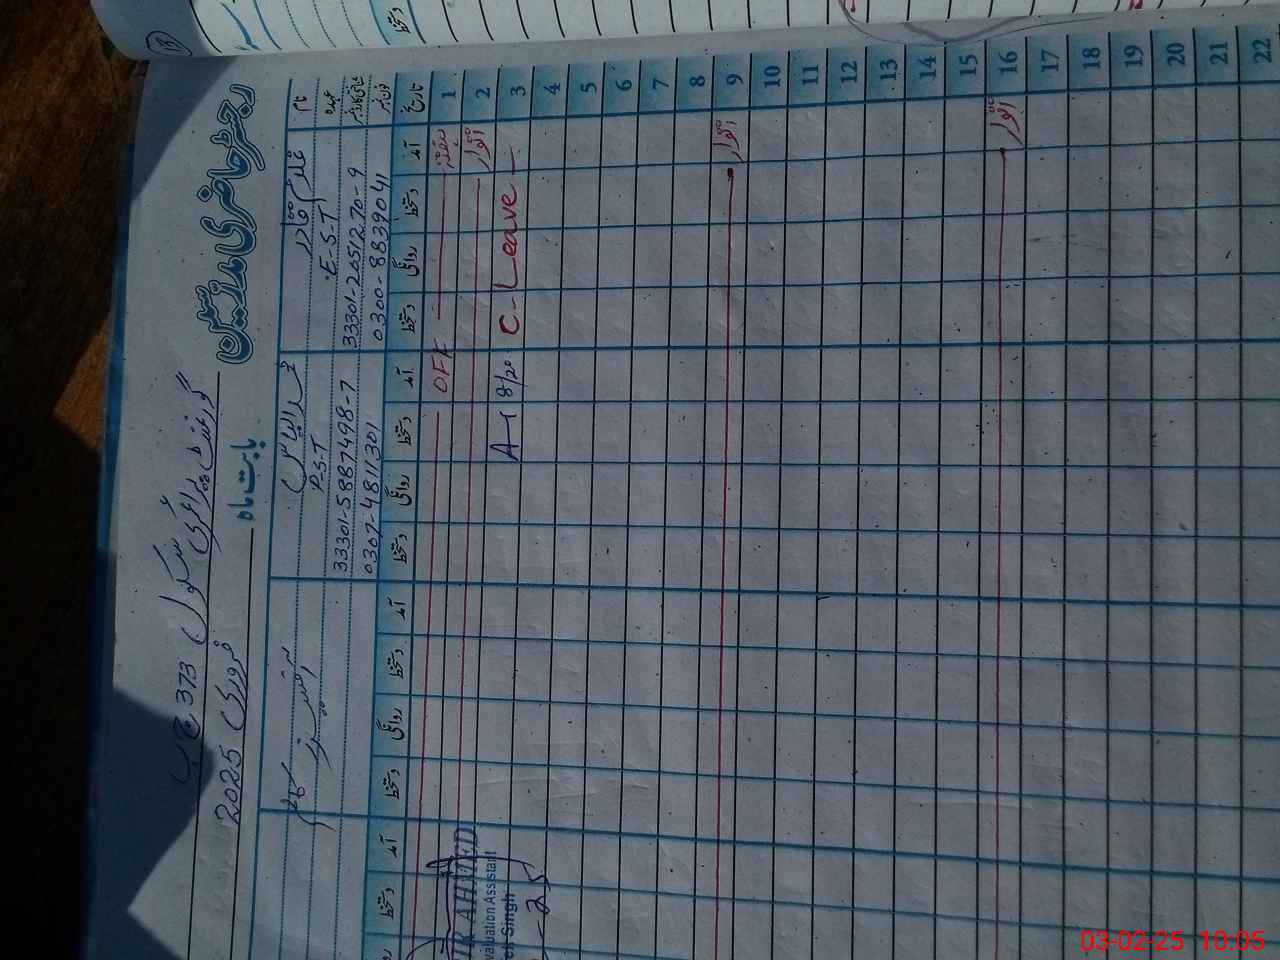 رجسٹر حاضری مدرسین
گورنمنٹ پرائمری سکول 373 ج ب
بابت ماہ فروری 2025
نام
غلام قادر
محمد الیاس
عہدہ
E.S.T
P.S.T
شناختی کارڈ نمبر
33301-2051270-9
33301-5887498-7
فون نمبر
0300-8839041
0307-4811301
تاریخ آمد دستخط روانگی دستخط آمد دستخط روانگی دستخط آمد دستخط روانگی دستخط آمد دستخط
1 ہفتہ OFF
2 اتوار
3 C-Leave 8/20
4
5
6
7
8
9 اتوار
10
11
12
13
14
15
16 اتوار
17
18
19
20
21
22
AHMED
valuation Assistant
Singh
03-02-25 10:05